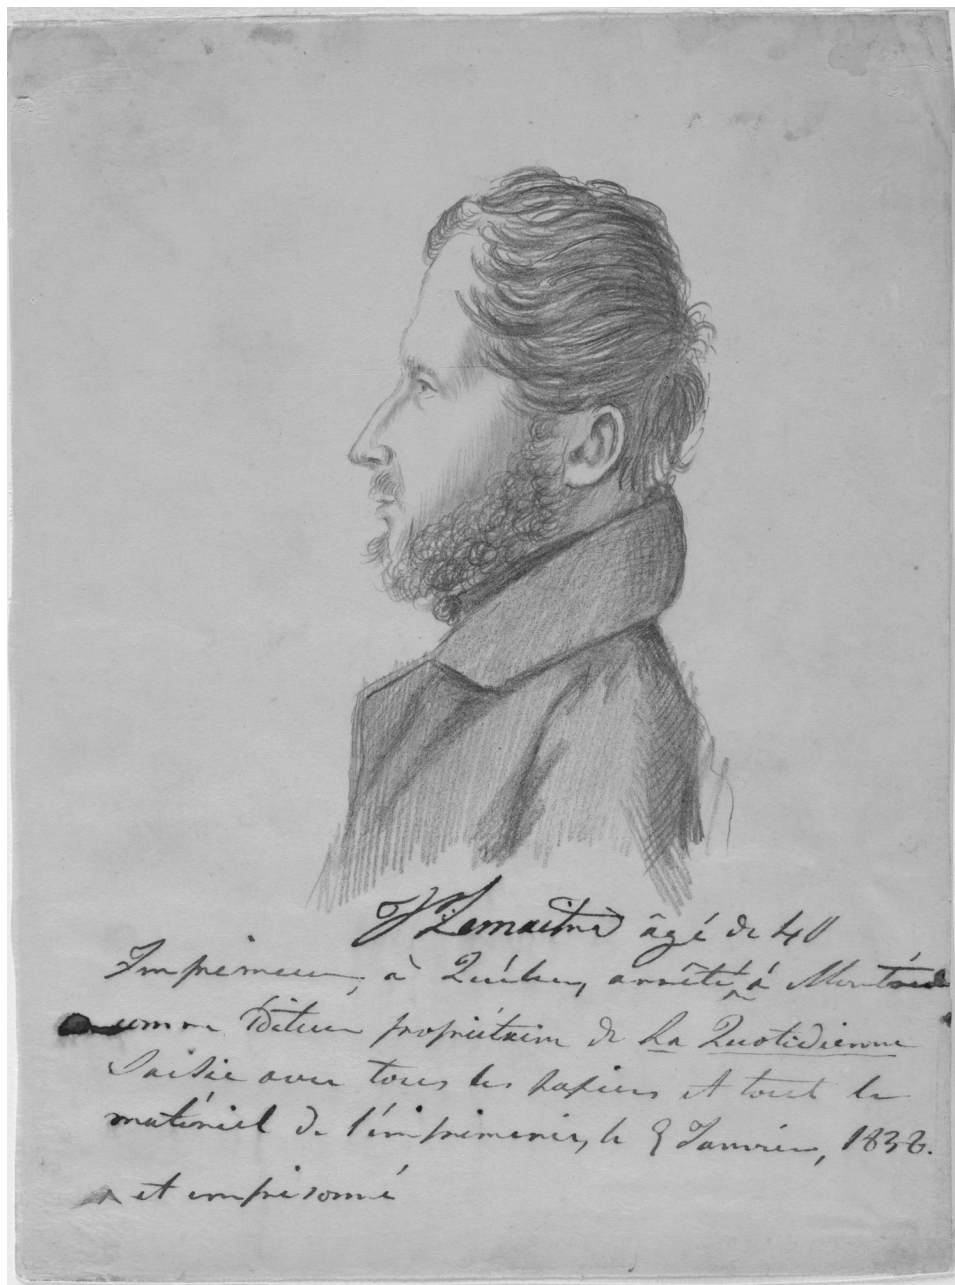 F. Lemaitre âgé de 40
Imprimeur, à Québec, arrêté à Montréal
comme Éditeur propriétaire de La Quotidienne
Saisie avec tous les papiers et tout le
matériel de l'imprimerie, le Janvier, 1838.
et emprisonné